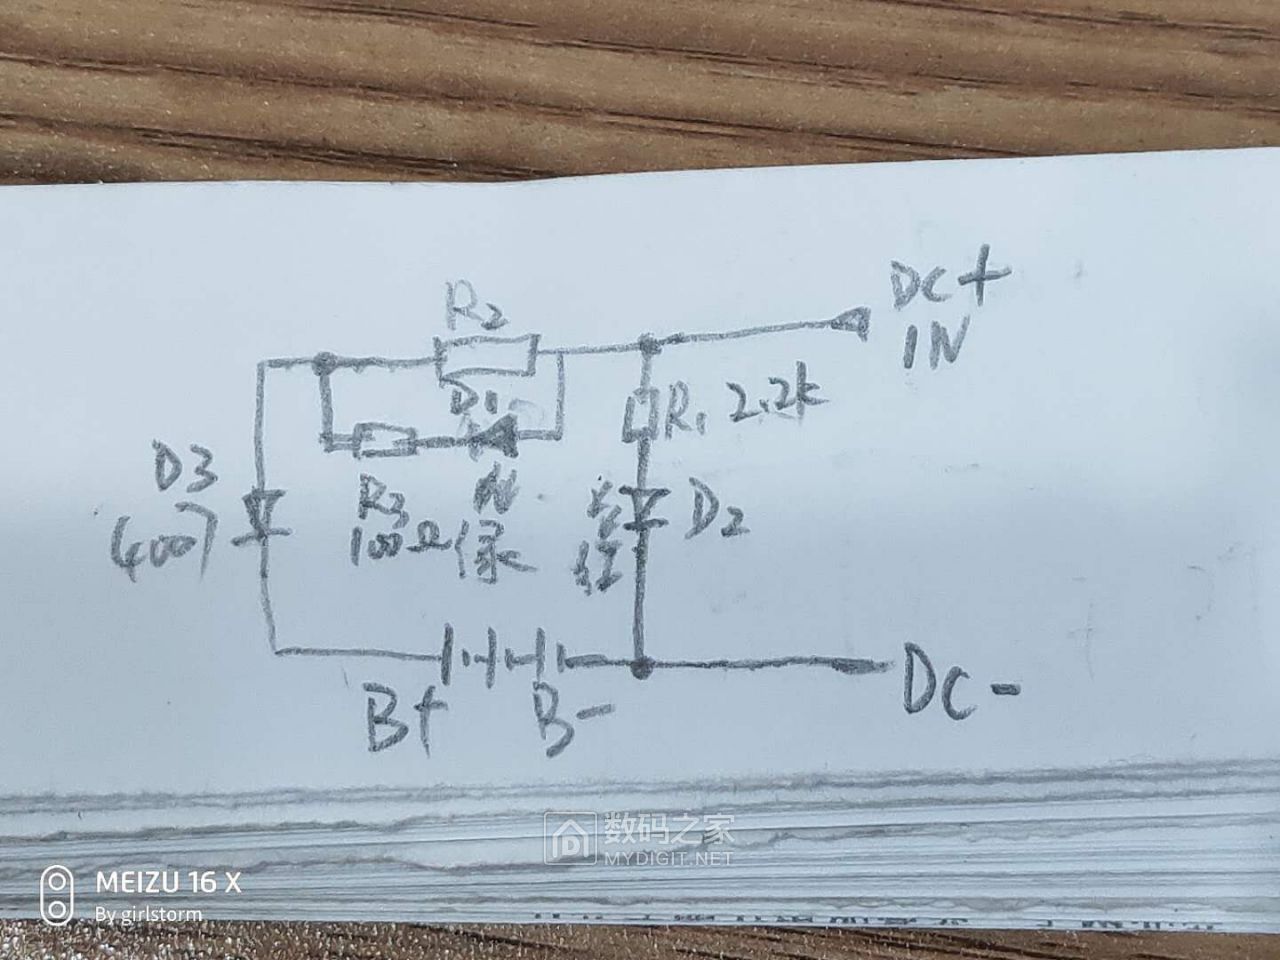 R2
DC+
IN
D1
R1 2.2k
D3
4007
R3
100Ω
绿
D2
红
B+
B-
DC-
数码之家
MYDIGIT.NET
MEIZU 16 X
By girlstorm